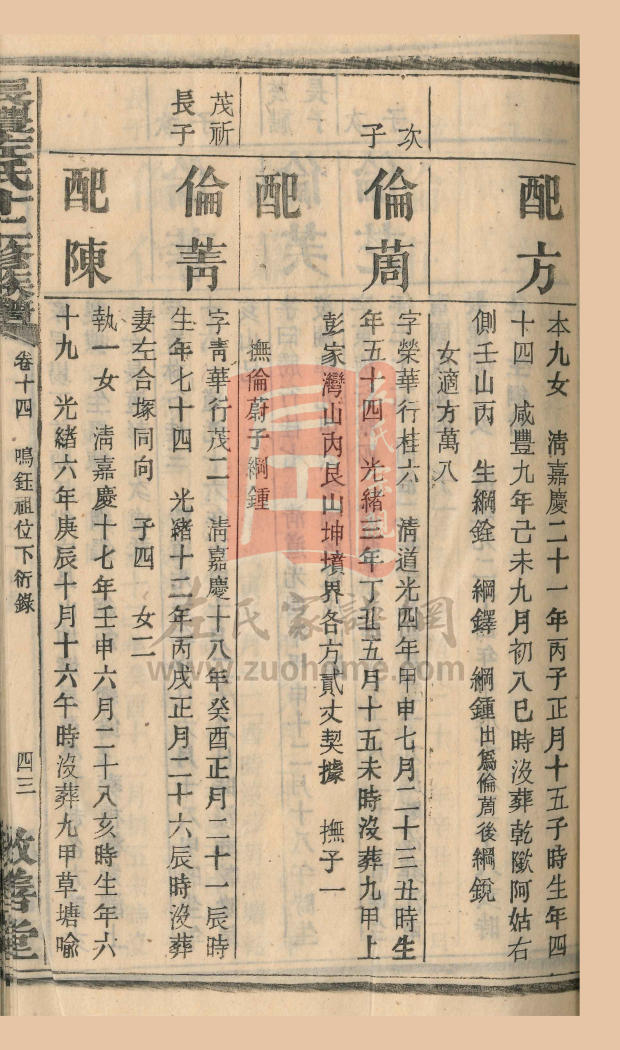 配方
本九女　清嘉慶二十一年丙子正月十五子時生年四
十四　咸豐九年己未九月初八巳時沒葬乾歟阿姑右
側壬山丙　生綱銓　綱鐸　綱鍾出爲倫蔄後綱銳
女適方萬八
次子
倫蔄
字榮華行桂六　清道光四年甲申七月二十三丑時生
年五十四　光緒三年丁丑五月十五未時沒葬九甲上
彭家灣山內艮山坤墳界各方貳丈契據　撫子一
配
撫倫蔚子綱鍾
茂祈長子
倫菁
字青華行茂二　清嘉慶十八年癸酉正月二十一辰時
生年七十四　光緒十二年丙戌正月二十六辰時沒葬
妻左合塚同向　子四　女二
配陳
執一女　清嘉慶十七年壬申六月二十八亥時生年六
十九　光緒六年庚辰十月十六午時沒葬九甲草塘喩
氏十二修族譜
卷十四　鳴鈺祖位下衍錄
四三
善堂
左氏家譜網
www.zuohome.com